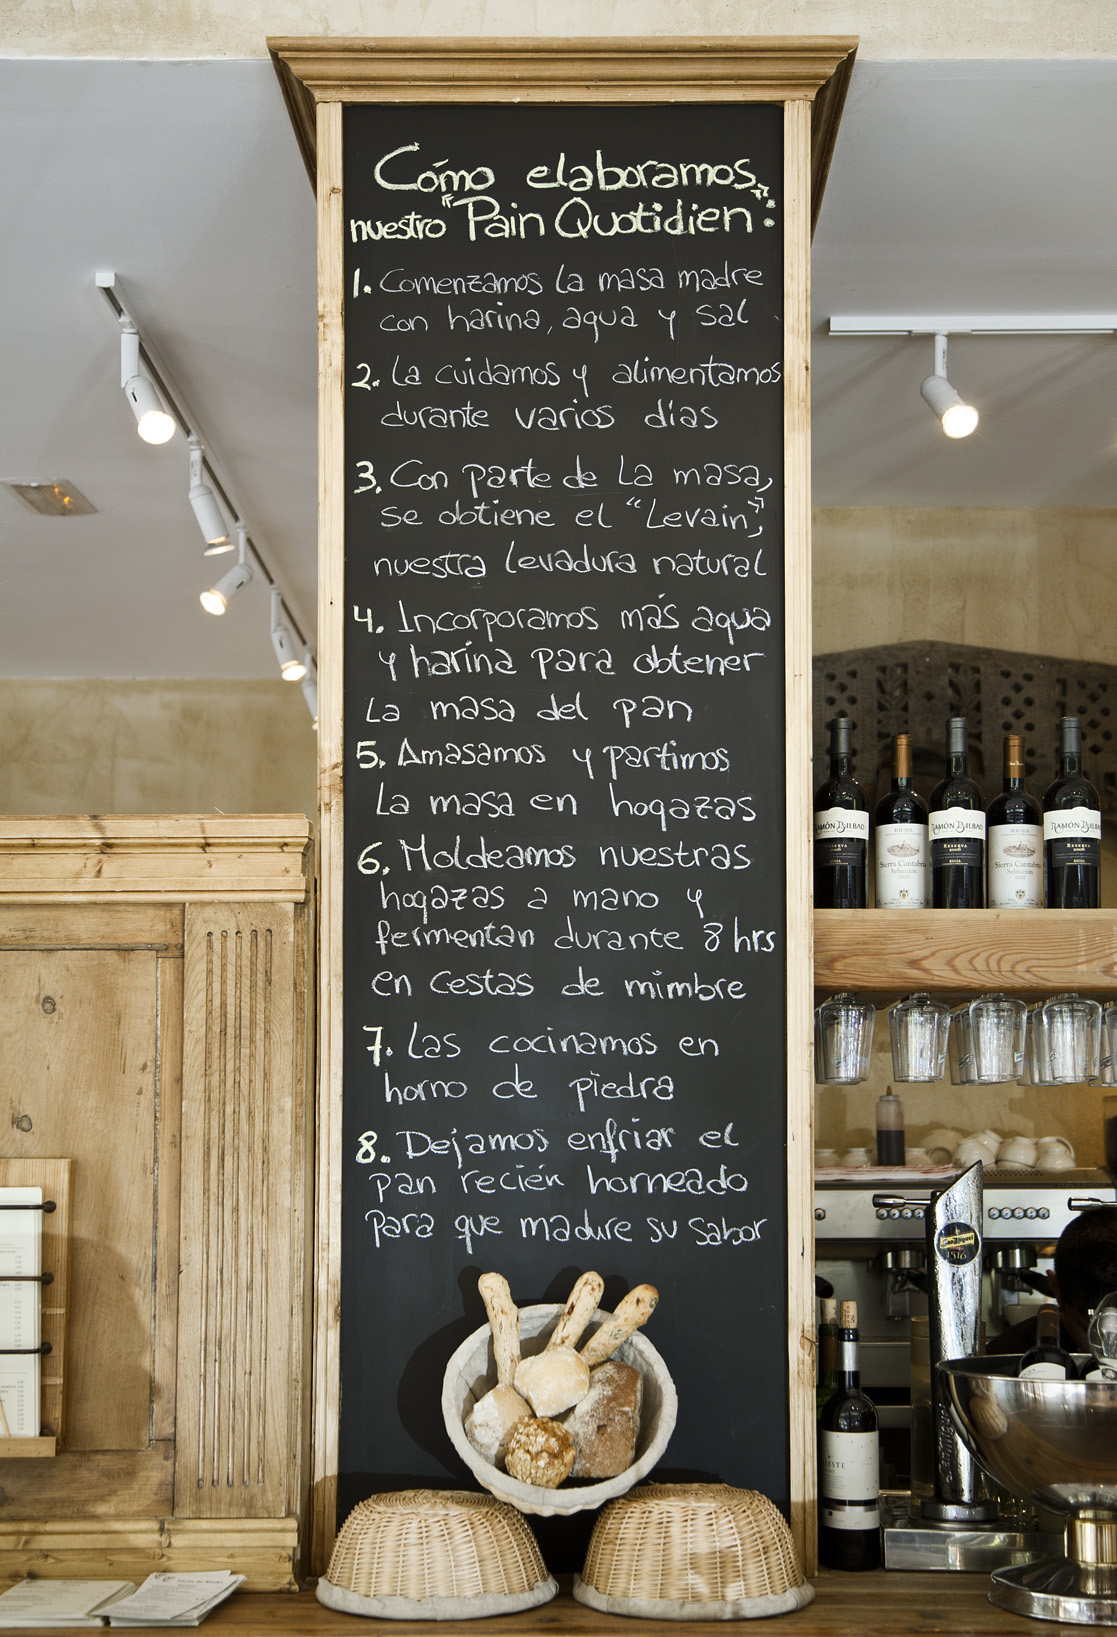 Cómo elaboramos
nuestro "Pain Quotidien":
1. Comenzamos la masa madre
con harina, agua y sal
2. La cuidamos y alimentamos
durante varios días
3. Con parte de la masa,
se obtiene el "Levain",
nuestra levadura natural
4. Incorporamos más agua
y harina para obtener
la masa del pan
5. Amasamos y partimos
la masa en hogazas
6. Moldeamos nuestras
hogazas a mano y
fermentan durante 8 hrs
en cestas de mimbre
7. Las cocinamos en
horno de piedra
8. Dejamos enfriar el
pan recién horneado
para que madure su sabor
RAMÓN BILBAO
RESERVA
2006
RIOJA
RIOJA
Sierra Cantabria
Selección
RAMÓN BILBAO
RESERVA
2006
RIOJA
RIOJA
Sierra Cantabria
Selección
RAMÓN BILBAO
RESERVA
2006
RIOJA
1516